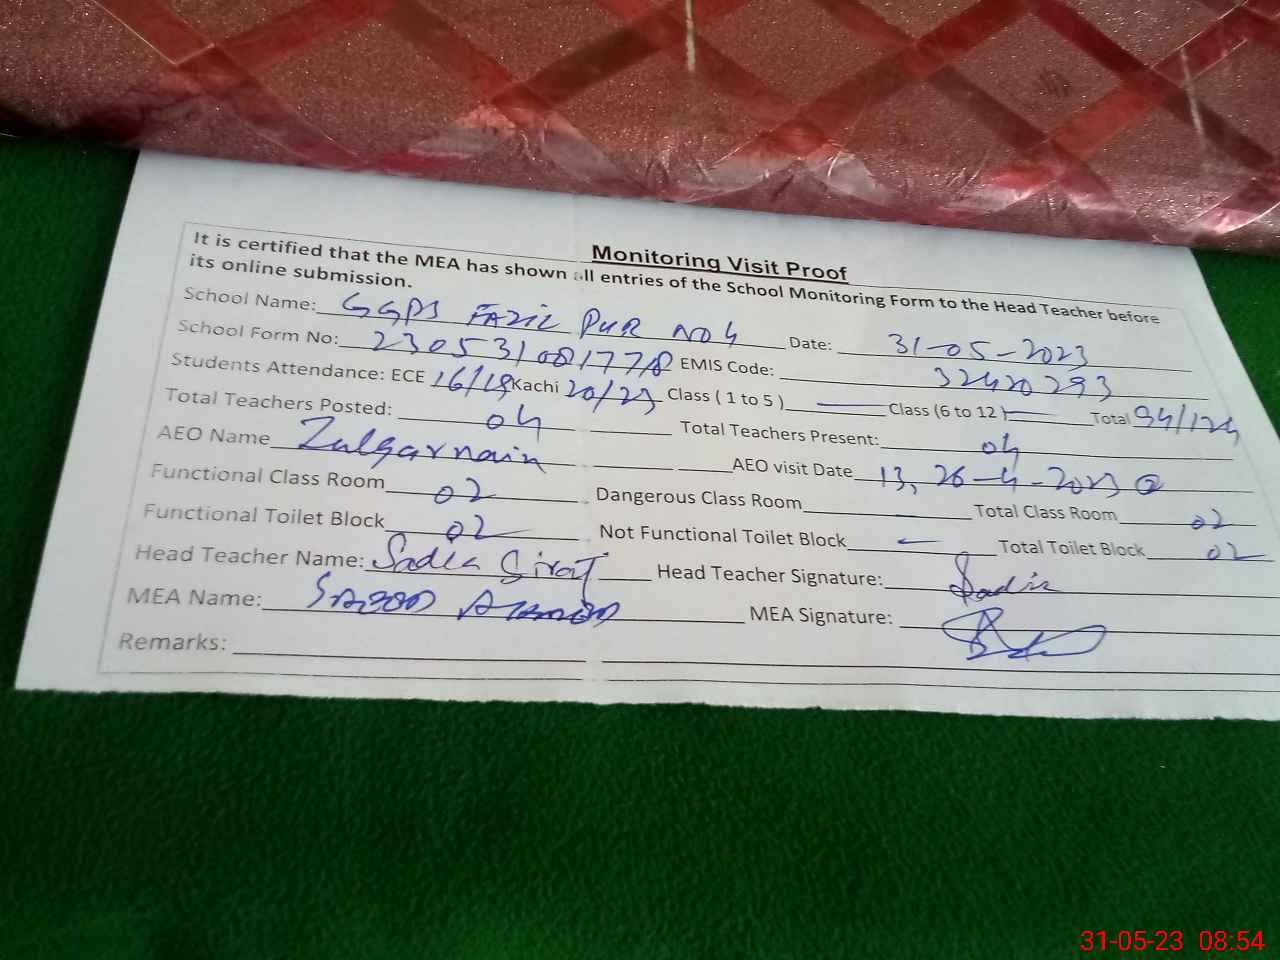 Monitoring Visit Proof
It is certified that the MEA has shown all entries of the School Monitoring Form to the Head Teacher before
its online submission.
School Name: GGPS FAZIL PUR NO 4 Date: 31-05-2023
School Form No: 230531081778 EMIS Code: 32420293
Students Attendance: ECE 16/19 Kachi 20/23 Class ( 1 to 5 ) — Class (6 to 12 ) — Total 94/124
Total Teachers Posted: 04 Total Teachers Present: 04
AEO Name Zulqarnain AEO visit Date 13, 26-4-2023
Functional Class Room 02 Dangerous Class Room — Total Class Room 02
Functional Toilet Block 02 Not Functional Toilet Block — Total Toilet Block 02
Head Teacher Name: Sadia Siraj Head Teacher Signature: Sadia
MEA Name: MEA Signature:
Remarks:
31-05-23 08:54